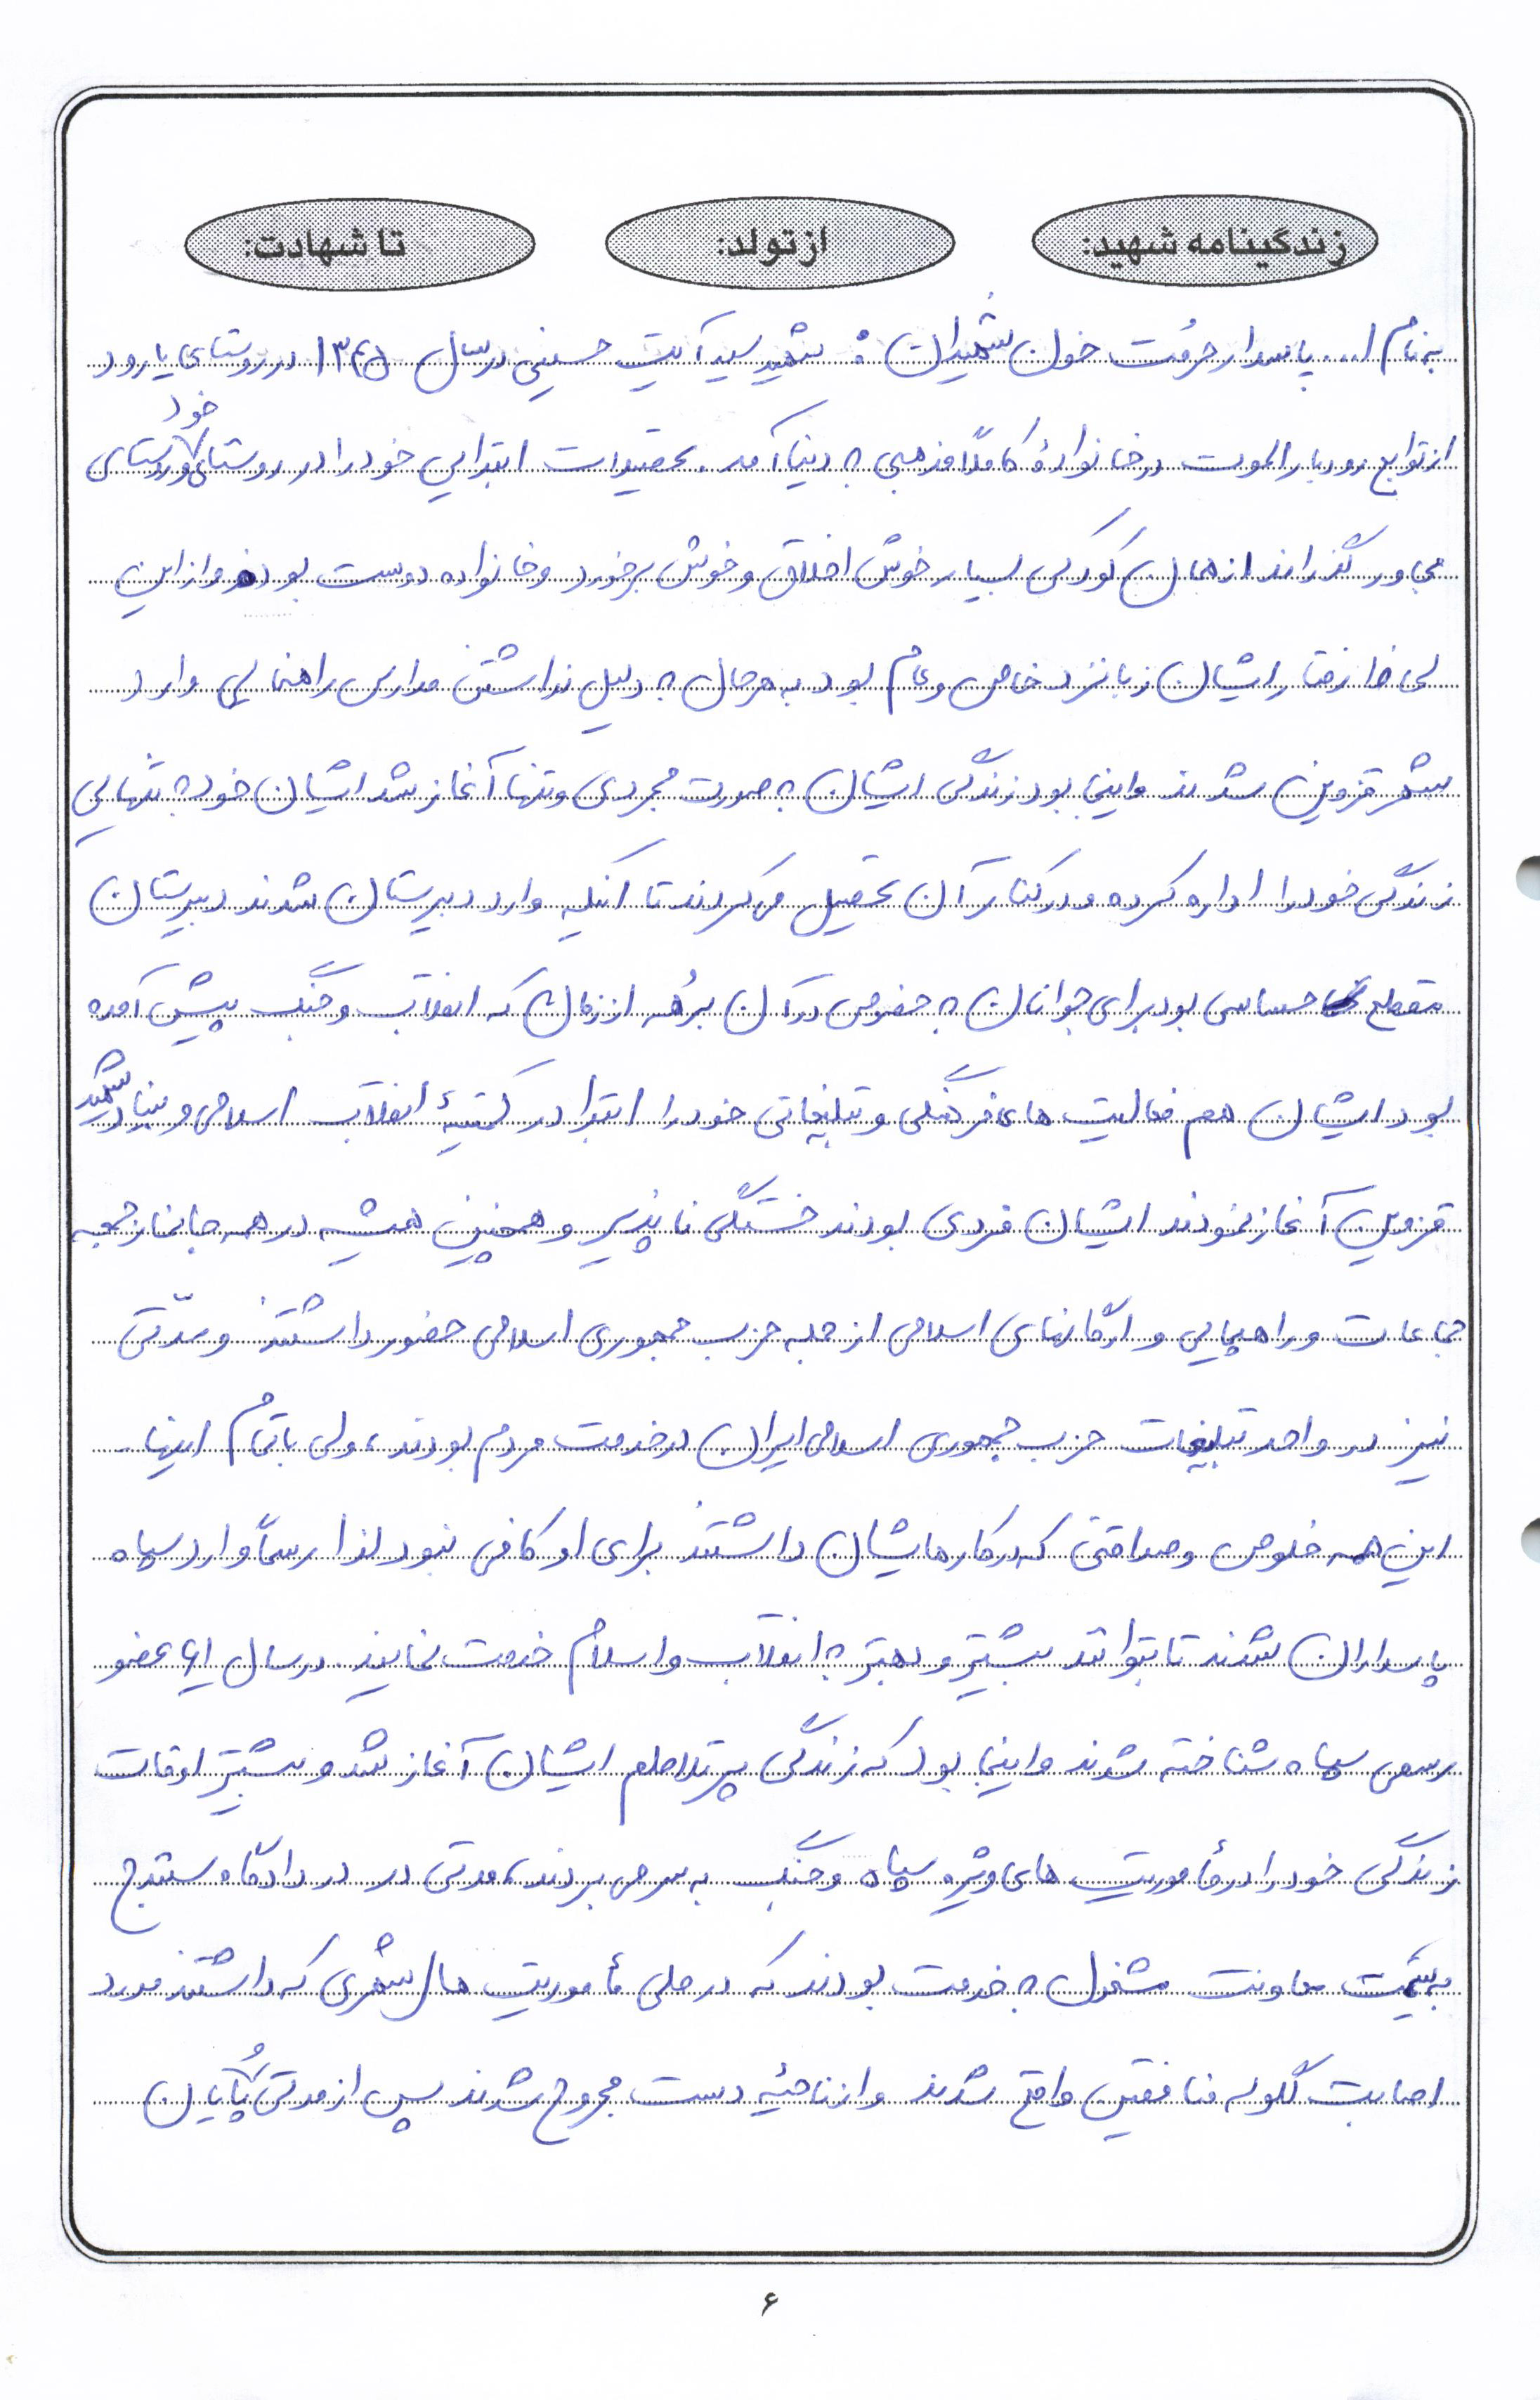 زندگینامه شهید: از تولد: تا شهادت:
به نام ا... پاسدار حرمُت خون شهیدان : شهید سید آیت حسینی در سال ۱۳۴۵ در روستای یارود
از توابع رودبار الموت در خانوادهٔ کاملاً مذهبی به دنیا آمد. تحصیلات ابتدایی خود را در روستای خود و روستای
مجاور گذراند از همان کودکی بسیار خوش اخلاق و خوش برخورد و خانواده دوست بودند و از این
لحاظ رفتار ایشان زبانزد خاص و عام بود به هر حال به دلیل نداشتن مدارس راهنمایی وارد
شهر قزوین شدند و اینجا بود زندگی ایشان به صورت مجردی و تنها آغاز شد ایشان خود به تنهایی
زندگی خود را اداره کرده و در کنار آن تحصیل می کردند تا اینکه وارد دبیرستان شدند دبیرستان
مقطع حساسی بود برای جوانان به خصوص در آن بُرهه از زمان که انقلاب و جنگ پیش آمده
بود ایشان هم فعالیت های فرهنگی و تبلیغاتی خود را ابتدا در کمیتهٔ انقلاب اسلامی و بنیاد شهید
قزوین آغاز نمودند ایشان فردی بودند خستگی ناپذیر و همچنین همیشه در همه جا نماز جمعه
جماعات و راهپیمایی و ارگانهای اسلامی از جمله حزب جمهوری اسلامی حضور داشتند و مدّتی
نیز در واحد تبلیغات حزب جمهوری اسلامی ایران در خدمت مردم بودند، ولی با تمام اینها -
این همه خلوص و صداقتی که در کارهایشان داشتند برای او کافی نبود لذا رسماً وارد سپاه
پاسداران شدند تا بتوانند بیشتر و بهتر به انقلاب و اسلام خدمت نمایند. در سال ۶۱ عضو
رسمی سپاه شناخته شدند و اینجا بود که زندگی پر تلاطم ایشان آغاز شد و بیشتر اوقات
زندگی خود را در مأموریت های ویژه سپاه و جنگ به سر می بردند، مدتی در در دادگاه سنندج
به سِمَت معاونت مشغول به خدمت بودند که در طی مأموریت های شهری که داشتند مورد
اصابت گلوله منافقین واقع شدند و از ناحیهٔ دست مجروح شدند پس از مدتی و پایان
۶